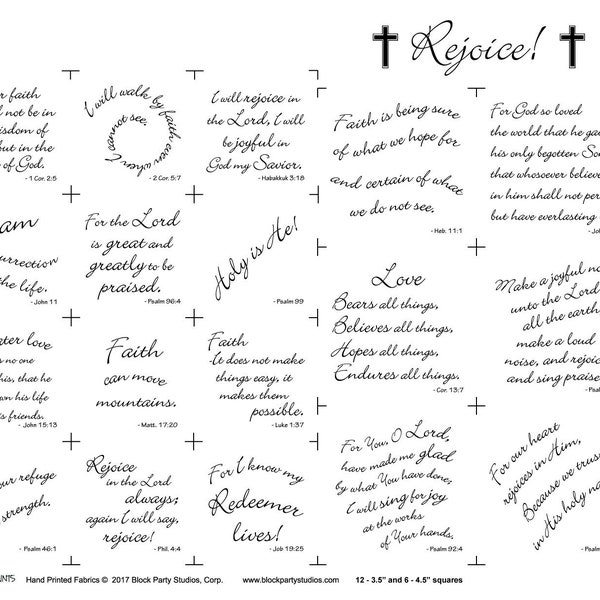 Rejoice!
faith
not be in
of
but in the
of God.
- 1 Cor. 2:5
I will walk by faith even when I cannot see.
- 2 Cor. 5:7
I will rejoice in
the Lord, I will
be joyful in
God my Savior.
- Habakkuk 3:18
Faith is being sure
of what we hope for
and certain of what
we do not see.
- Heb. 11:1
For God so loved
the world that he
his only begotten
that whosoever
in him shall not
but have everlasting
am
the life.
- John 11
For the Lord
is great and
greatly to be
praised.
- Psalm 96:4
Holy is He!
- Psalm 99
Love
Bears all things,
Believes all things,
Hopes all things,
Endures all things.
- Cor. 13:7
Make a joyful
unto the Lord
all the earth
make a loud
noise, and rejoice
and sing praise
- Psalm
love
no one
this, that he
his life
friends.
- John 15:13
Faith
can move
mountains.
- Matt. 17:20
Faith
-It does not make
things easy, it
makes them
possible.
- Luke 1:37
refuge
strength.
- Psalm 46:1
Rejoice
in the Lord
always;
again I will say,
rejoice!
- Phil. 4:4
For I know my
Redeemer
lives!
- Job 19:25
For You, O Lord,
have made me glad
by what You have done;
I will sing for joy
at the works
of Your hands.
- Psalm 92:4
For our heart
rejoices in Him,
Because we trust
in His holy
- Psalm
Hand Printed Fabrics © 2017 Block Party Studios, Corp. www.blockpartystudios.com 12 - 3.5" and 6 - 4.5" squares